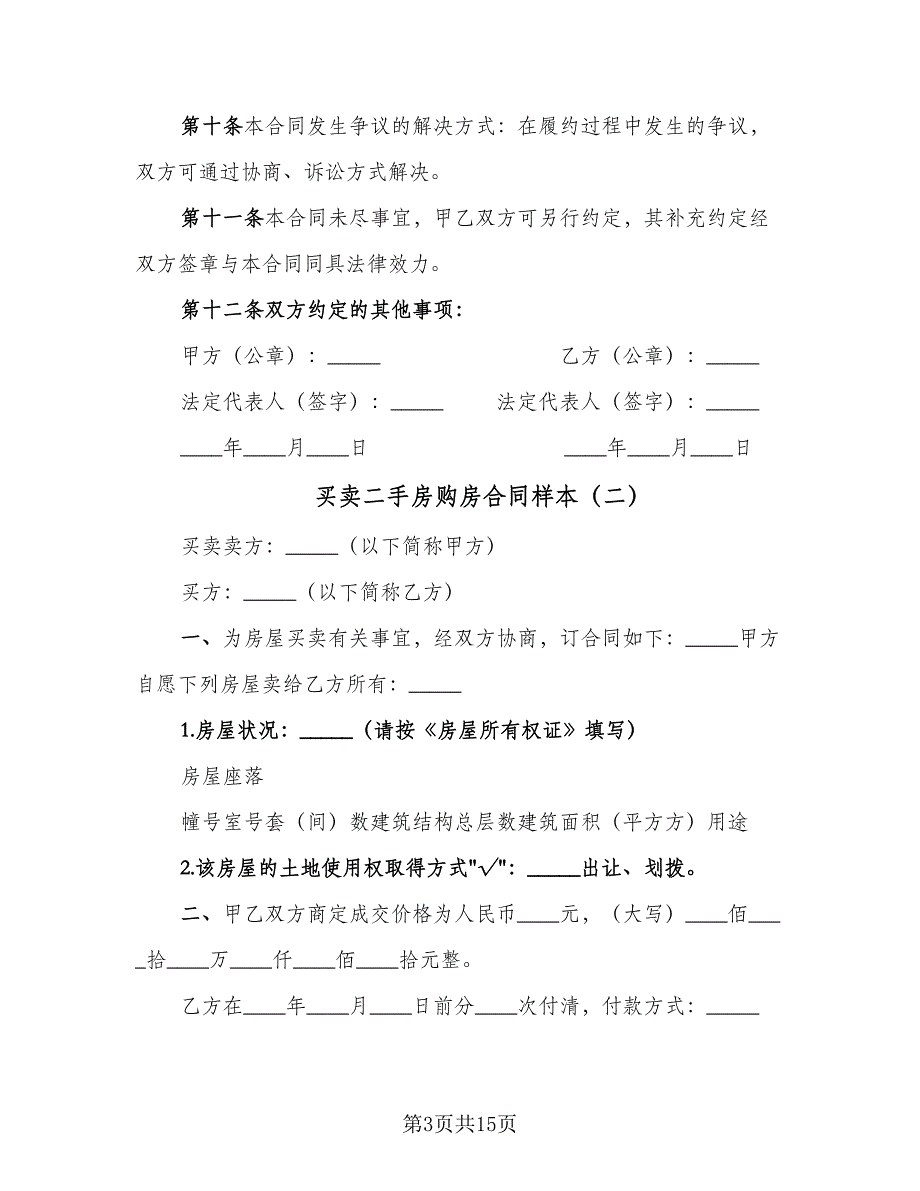 第十条本合同发生争议的解决方式：在履约过程中发生的争议，
双方可通过协商、诉讼方式解决。
第十一条本合同未尽事宜，甲乙双方可另行约定，其补充约定经
双方签章与本合同同具法律效力。
第十二条双方约定的其他事项：
甲方（公章）：_____ 乙方（公章）：_____
法定代表人（签字）：_____ 法定代表人（签字）：_____
____年____月____日 ____年____月____日
买卖二手房购房合同样本（二）
买卖卖方：_____（以下简称甲方）
买方：_____（以下简称乙方）
一、为房屋买卖有关事宜，经双方协商，订合同如下：_____甲方
自愿下列房屋卖给乙方所有：_____
1.房屋状况：_____（请按《房屋所有权证》填写）
房屋座落
幢号室号套（间）数建筑结构总层数建筑面积（平方方）用途
2.该房屋的土地使用权取得方式"√"：_____出让、划拨。
二、甲乙双方商定成交价格为人民币____元，（大写）____佰___
_拾____万____仟____佰____拾元整。
乙方在____年____月____日前分____次付清，付款方式：_____
第3页共15页